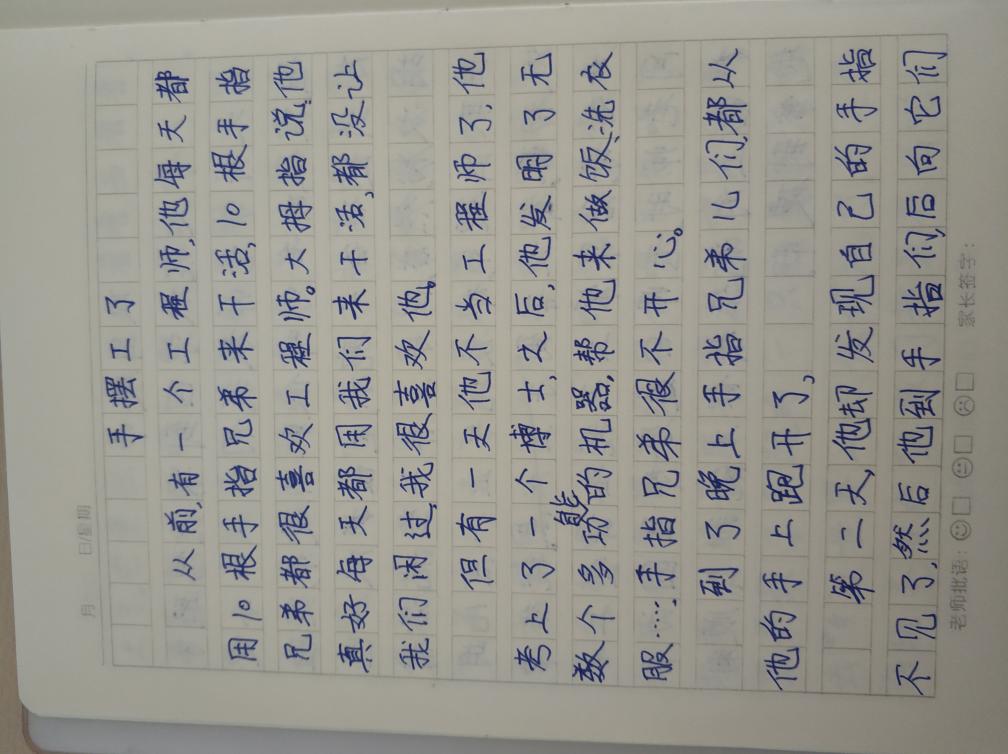 月 日/星期
手摆工了
从前,有一个工程师,他每天都
用10根手指兄弟来干活,10根手指
兄弟都很喜欢工程师。大拇指说:他
真好每天都用我们来干活,都没让
我们闲过,我很喜欢他。
但有一天他不当工程师了,他
考上了一个博士,之后,他发明了无
数个多功能的机器,帮他来做饭、洗衣
服……手指兄弟很不开心。
到了晚上手指兄弟儿们,都从
他的手上跑开了,
第二天,他却发现自己的手指
不见了,然后他到手指们,后向它们
老师批话: 家长签字: